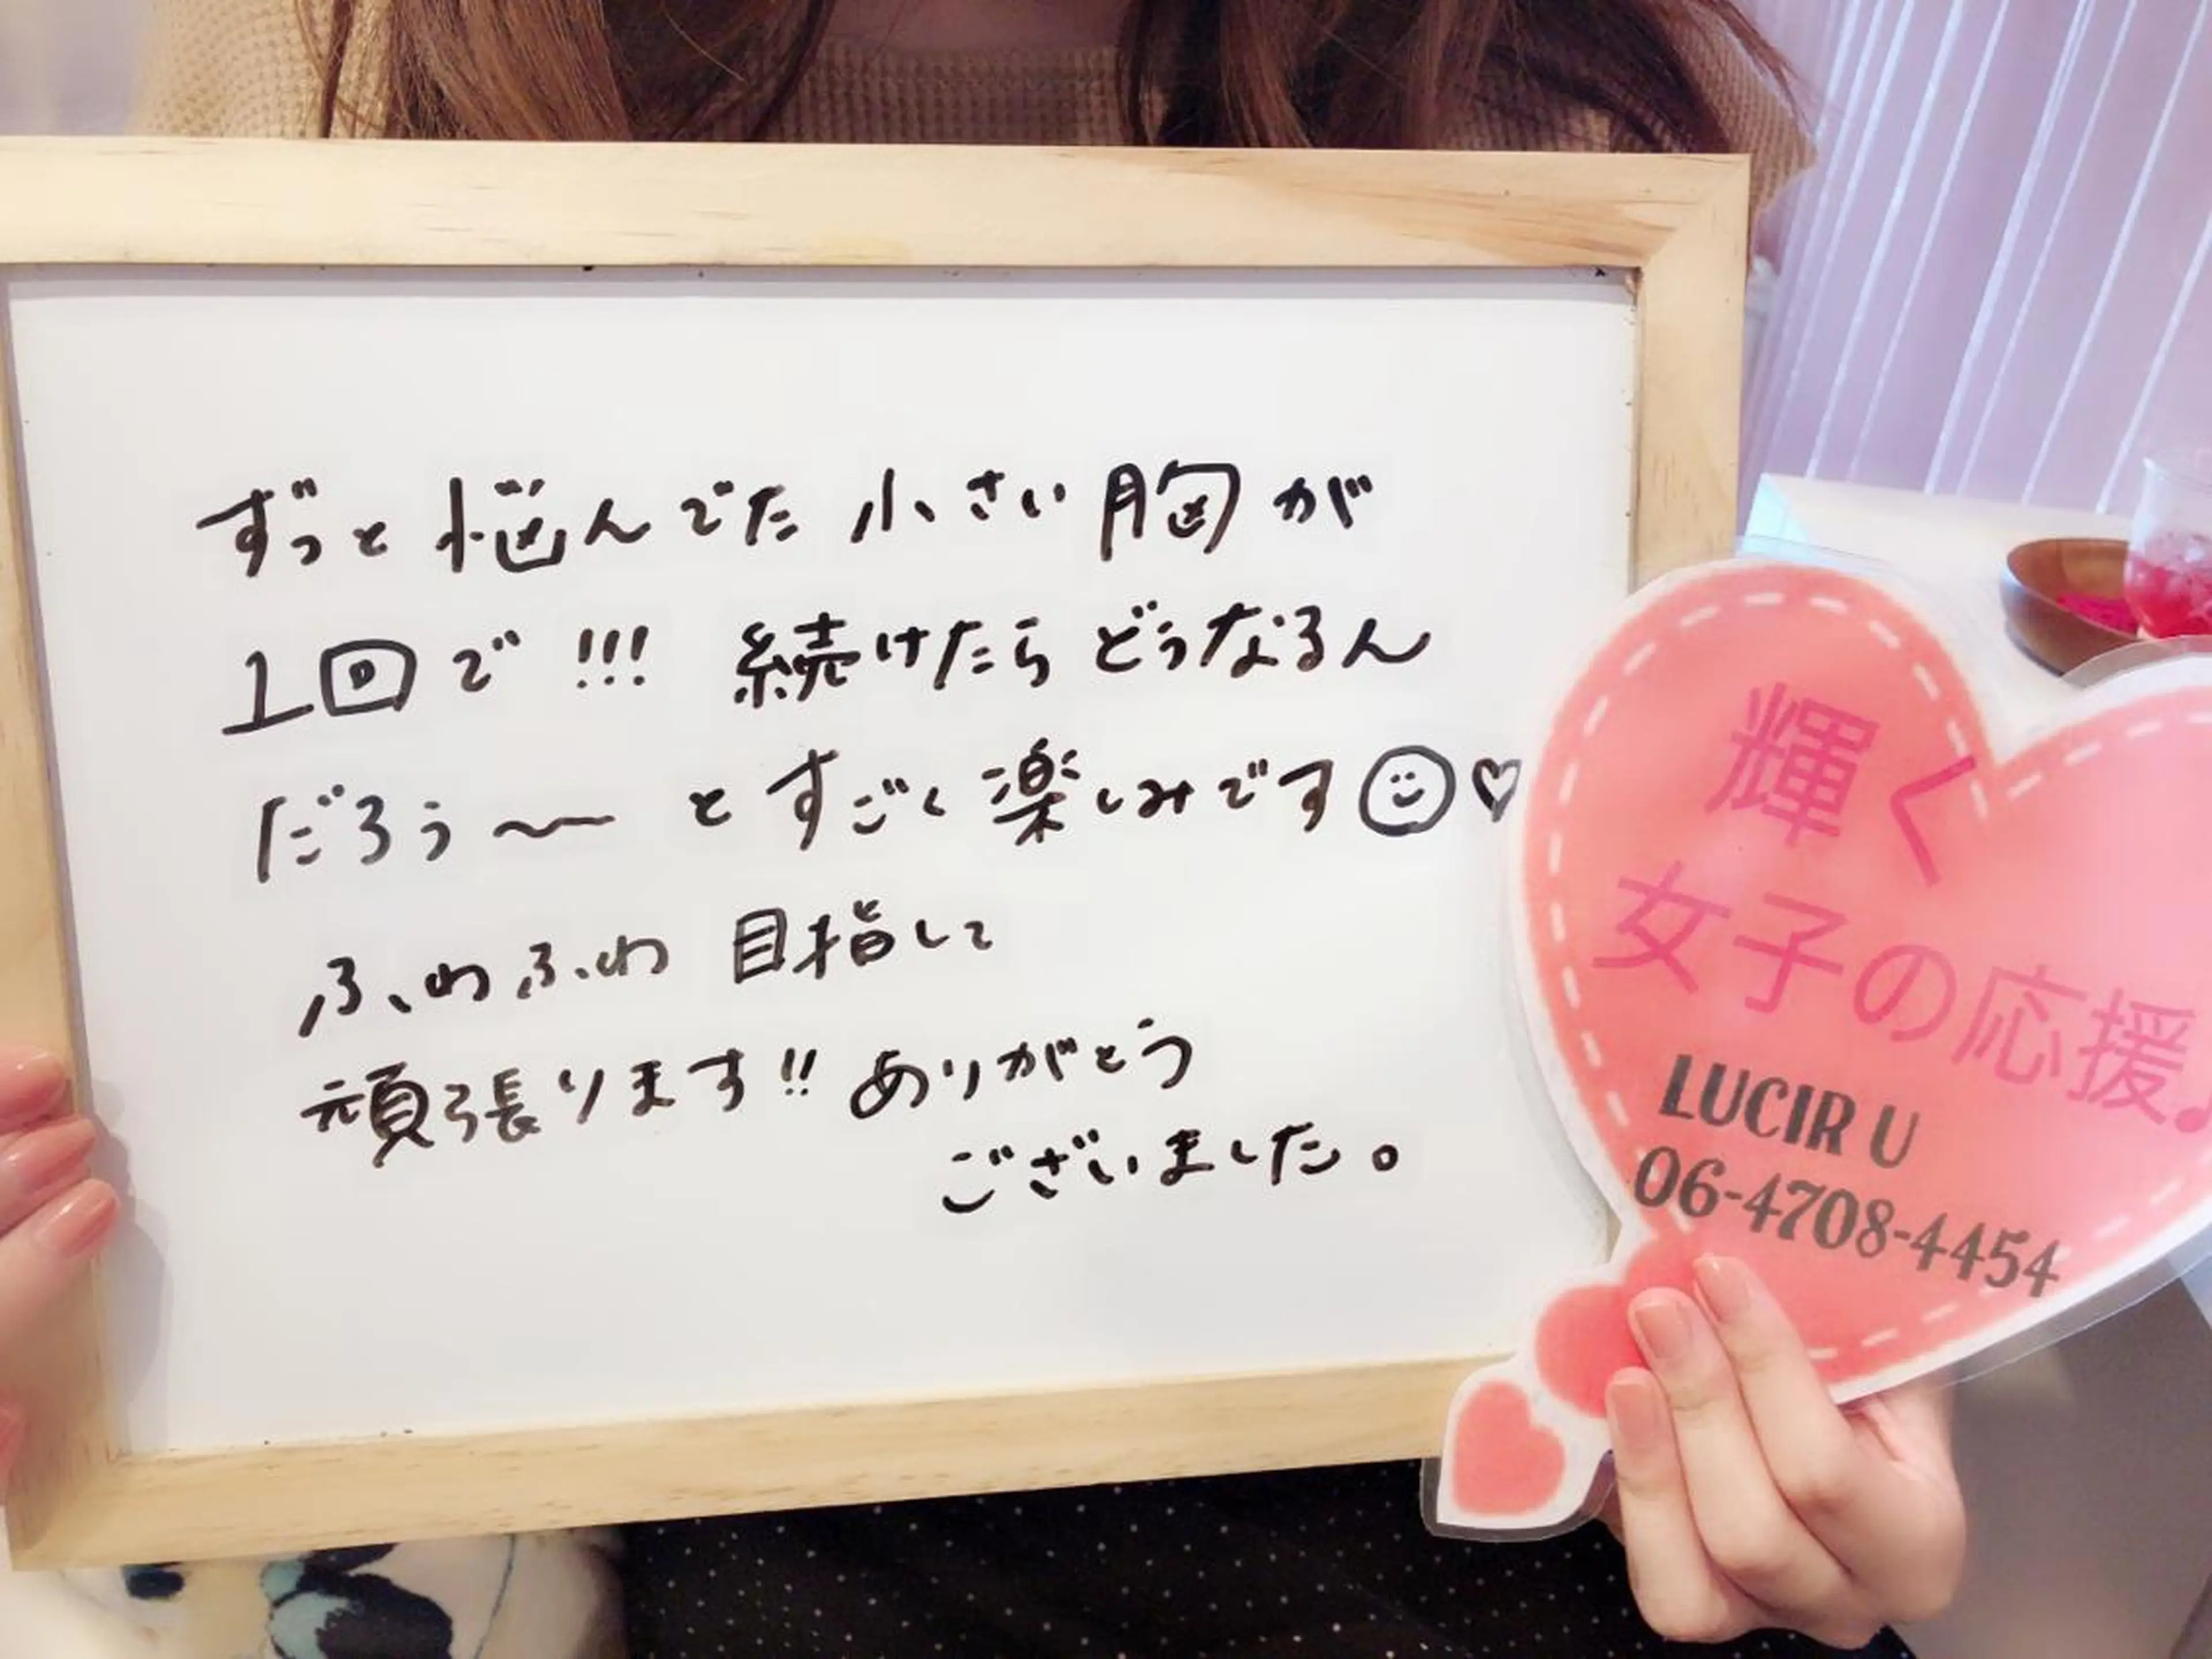 ずっと悩んでた小さい胸が
1回で!!! 続けたらどうなるん
だろぅ〜 とすごく楽しみです☺♡
ふわふわ 目指して
頑張ります!! ありがとう
ございました。
輝く
女子の応援♪
LUCIR U
06-4708-4454